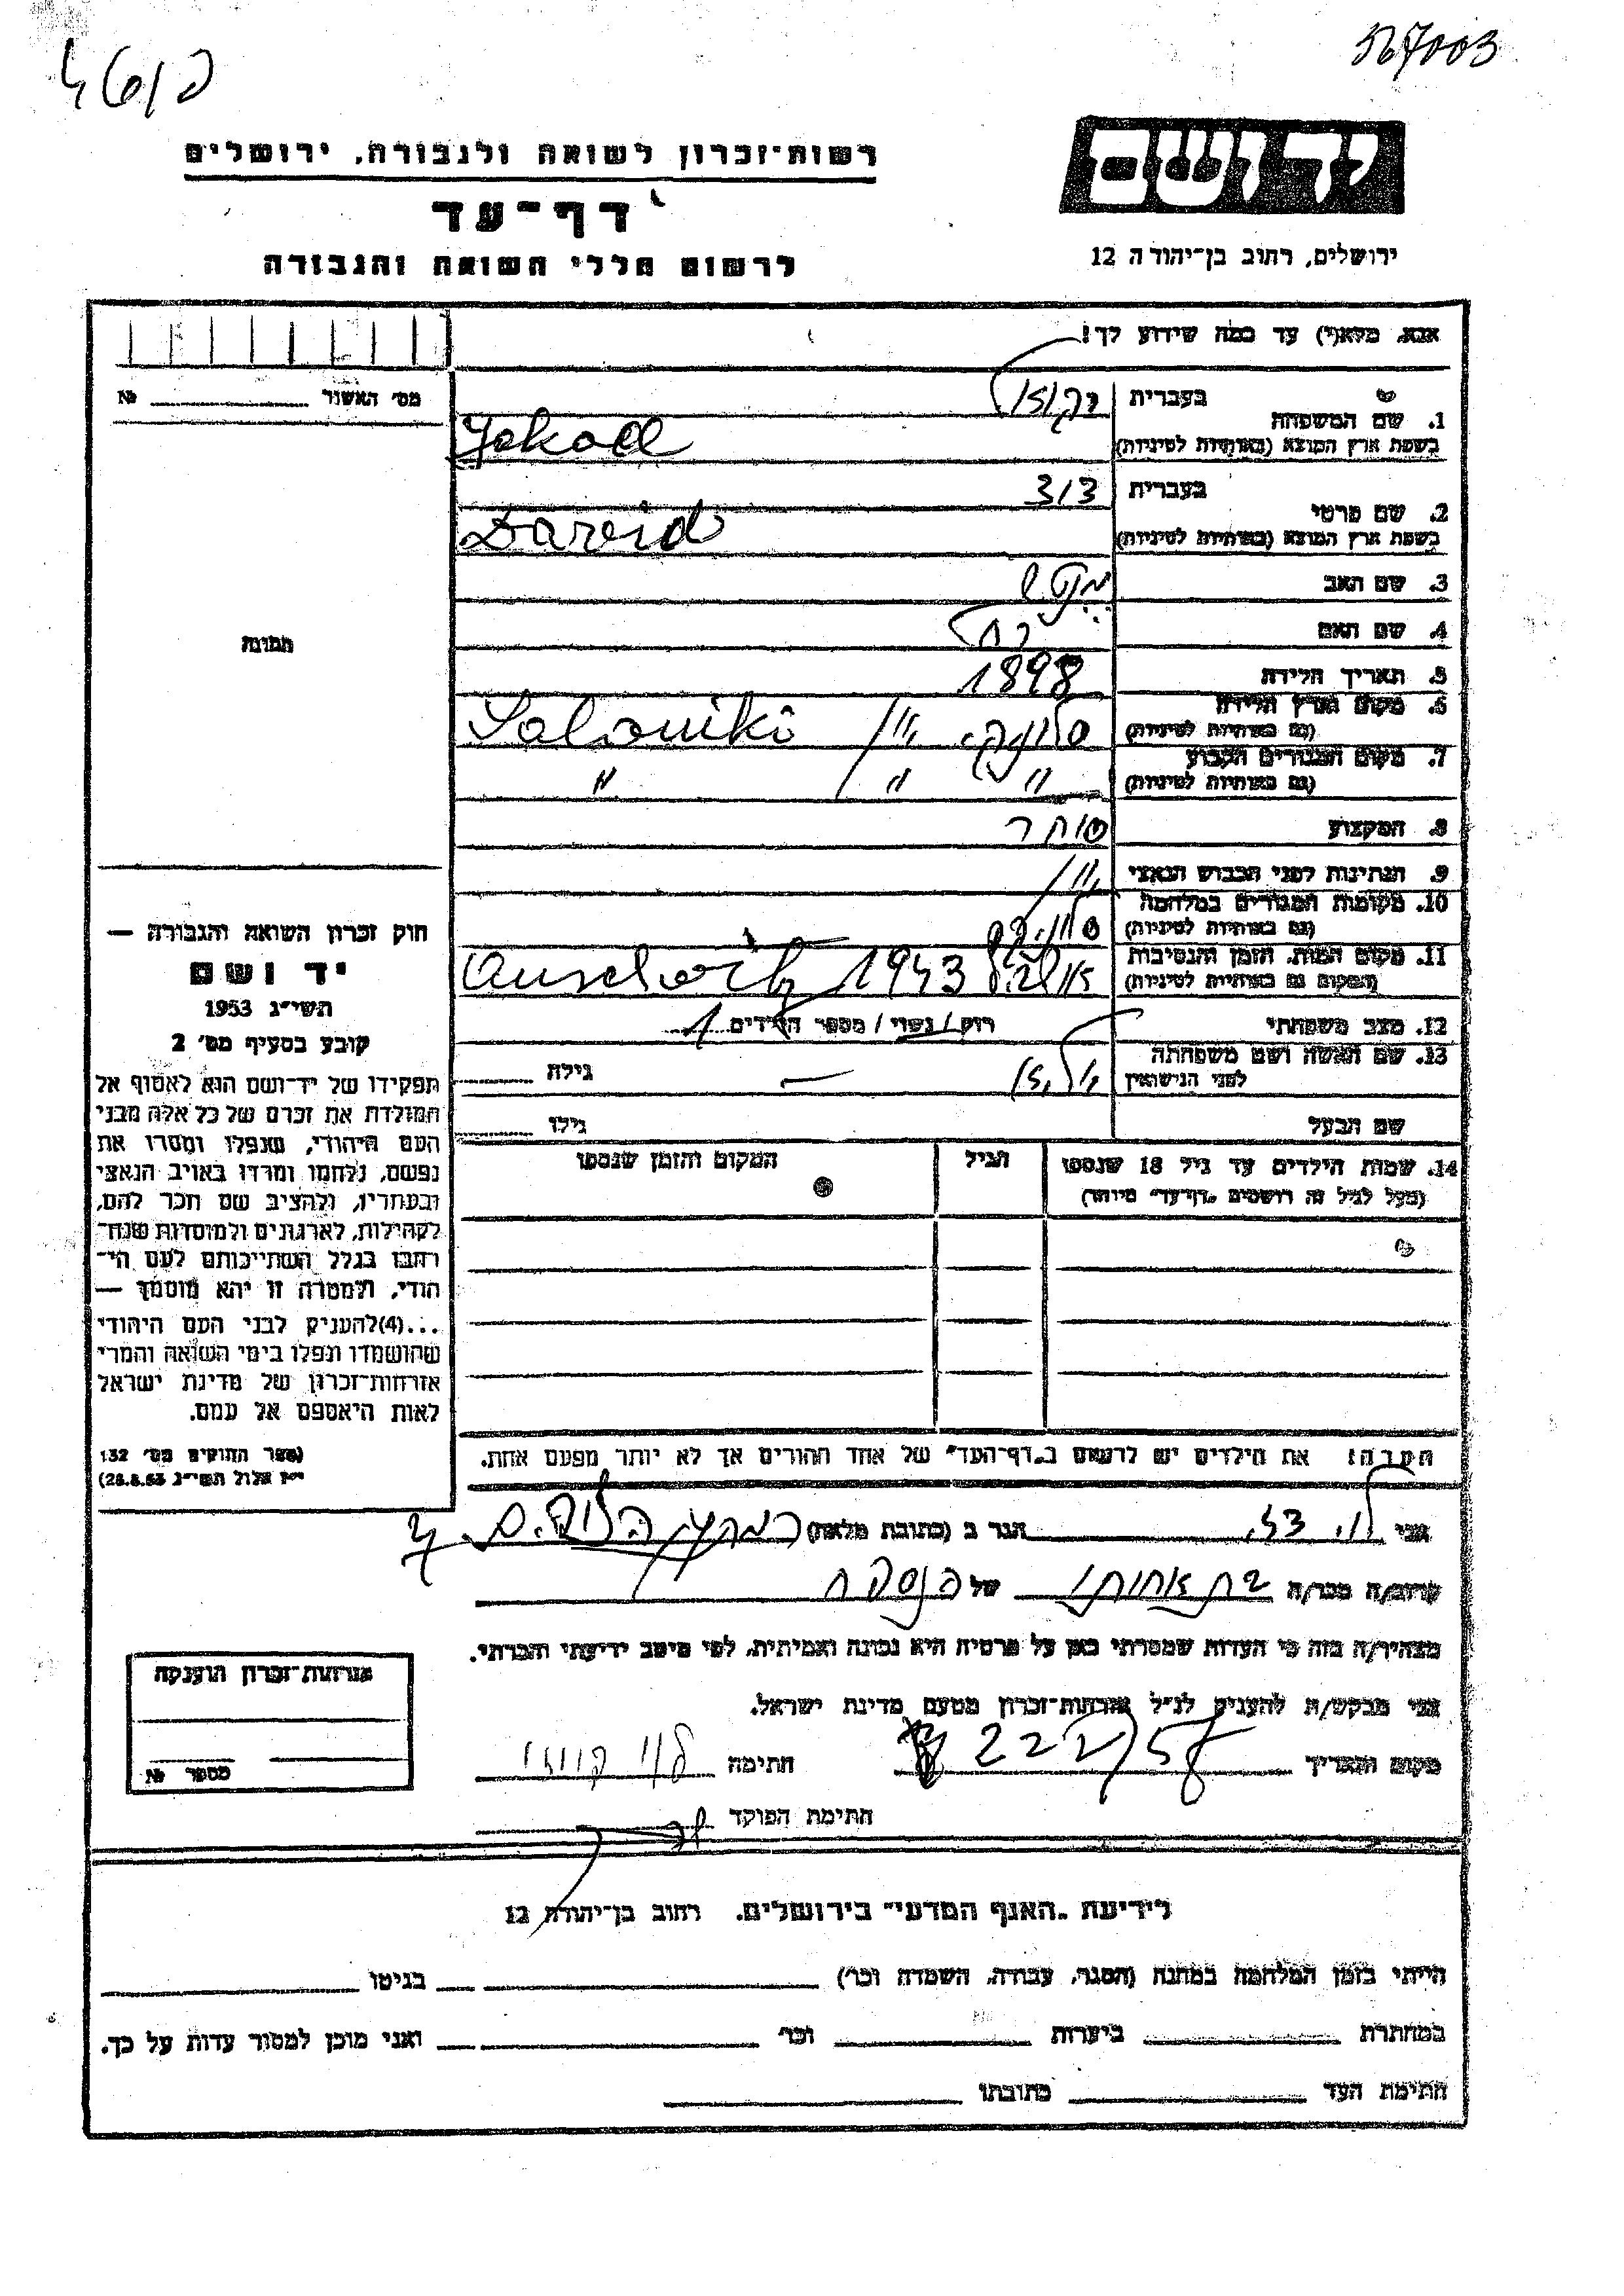 567003
רשות־זכרון לשואה ולגבורה, ירושלים
דף־עד
לרשום חללי השואה והגבורה
ירושלים, רחוב בן־יהודה 12
אנא, מלא(י) עד כמה שידוע לך!
מס׳ האשור № 
1. שם המשפחה
בעברית יקואל
בשפת ארץ המוצא (באותיות לטיניות) Jekoel
2. שם פרטי
בעברית דוד
בשפת ארץ המוצא (באותיות לטיניות) David
3. שם האב
4. שם האם רחל
5. תאריך הלידה 1898
6. מקום וארץ הלידה
(גם באותיות לטיניות) סלוניקי יון Saloniki
7. מקום המגורים הקבוע
(גם באותיות לטיניות) " " "
8. המקצוע סוחר
9. הנתינות לפני הכבוש הנאצי יון
10. מקומות המגורים במלחמה
(גם באותיות לטיניות) סלוניקי
11. מקום המות, הזמן והנסיבות
(המקום גם באותיות לטיניות) 1943 Auschwitz
12. מצב משפחתי רווק / נשוי / מספר הילדים 1
13. שם האשה ושם משפחתה
לפני הנישואין גילה
שם הבעל גילו
14. שמות הילדים עד גיל 18 שנספו
(מעל לגיל זה רושמים "דף־עד" מיוחד)
הגיל
המקום והזמן שנספו
הערה: את הילדים יש לרשום ב"דף־העד" של אחד ההורים אך לא יותר מפעם אחת.
תמונה
חוק זכרון השואה והגבורה —
יד ושם
תשי״ג 1953
קובע בסעיף מס׳ 2
תפקידו של יד־ושם הוא לאסוף אל
המולדת את זכרם של כל אלה מבני
העם היהודי, שנפלו ומסרו את
נפשם, נלחמו ומרדו באויב הנאצי
ובעוזריו, ולהציב שם וזכר להם,
לקהילות, לארגונים ולמוסדות שנח־
רבו בגלל השתייכותם לעם הי־
הודי, ולמטרה זו יהא מוסמך —
...(4)להעניק לבני העם היהודי
שהושמדו ונפלו בימי השואה והמרי
אזרחות־זכרון של מדינת ישראל
לאות היאספם אל עמם.
(ספר החוקים מס׳ 132
י״ז אלול תשי״ג 28.8.53)
אני הגר ב (כתובת מלאה)
קרוב/ה מכר/ה בת אחותו של המנוח
מצהיר/ה בזה כי העדות שמסרתי כאן על פרטיה היא נכונה ואמיתית, לפי מיטב ידיעתי והכרתי.
אני מבקש/ת להעניק לנ״ל אזרחות־זכרון מטעם מדינת ישראל.
מקום ותאריך חתימה
חתימת הפוקד
אזרחות־זכרון הוענקה
מספר №
לידיעת "האגף המדעי" בירושלים, רחוב בן־יהודה 12
הייתי בזמן המלחמה במחנה (הסגר, עבודה, השמדה וכו׳) בגיטו
במחתרת ביערות וכו׳ ואני מוכן למסור עדות על כך.
חתימת העד כתובתו